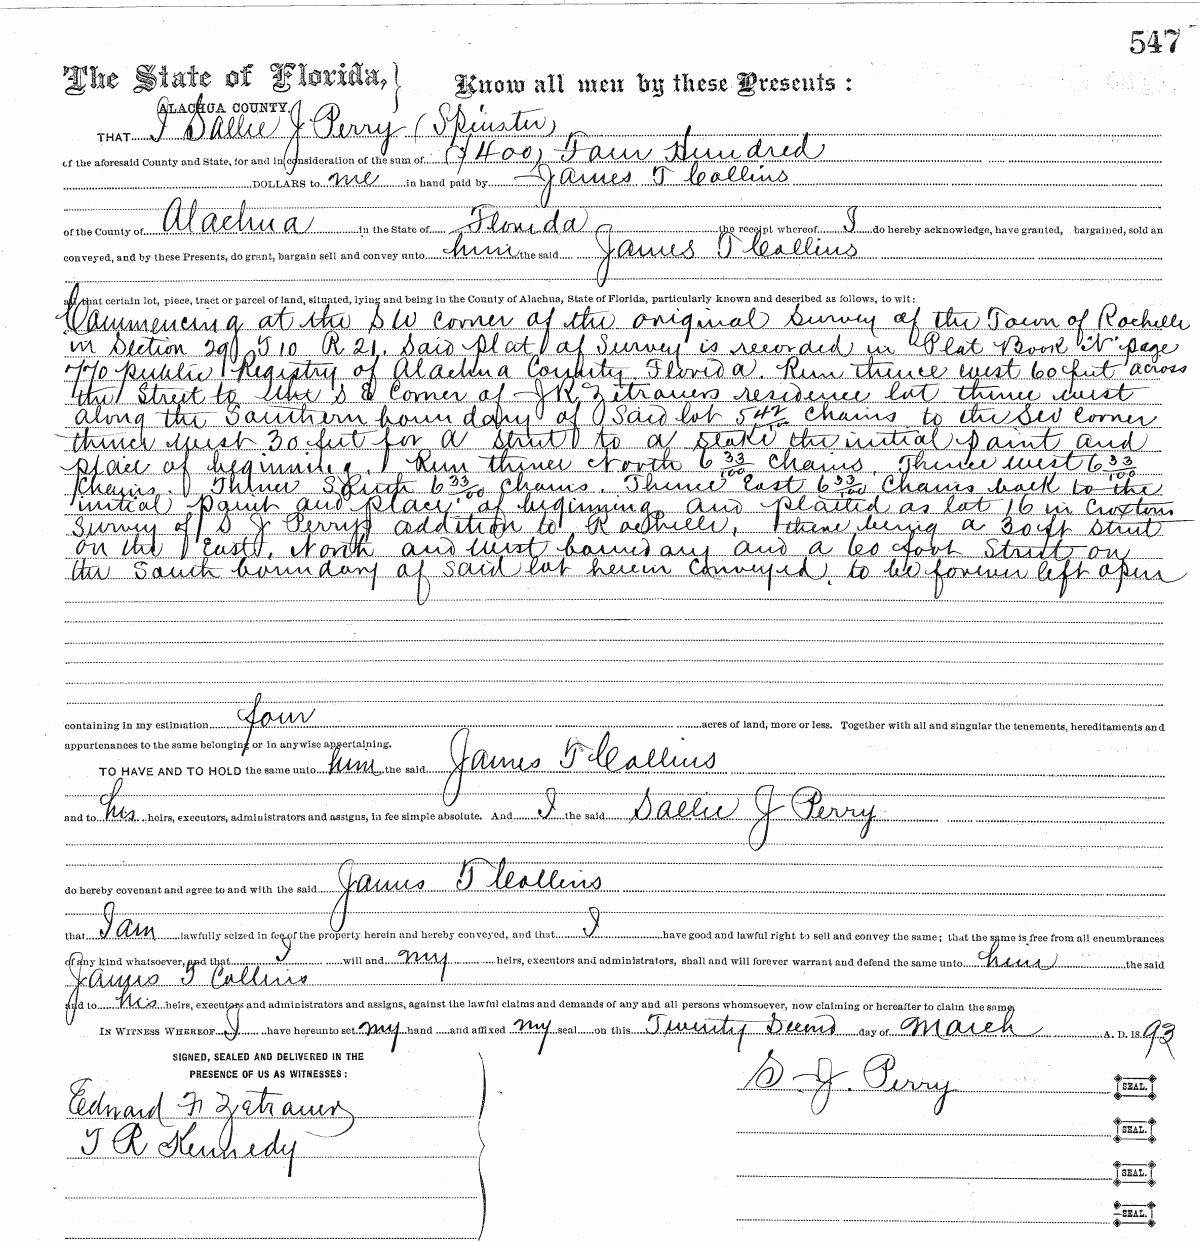 547
The State of Florida,
Know all men by these Presents :
ALACHUA COUNTY.
THAT I Sallie J Perry (Spinster)
of the aforesaid County and State, for and in consideration of the sum of ($400) Four Hundred
DOLLARS to me in hand paid by James T Collins
of the County of Alachua in the State of Florida the receipt whereof I do hereby acknowledge, have granted, bargained, sold an
conveyed, and by these Presents, do grant, bargain sell and convey unto him the said James T Collins
all that certain lot, piece, tract or parcel of land, situated, lying and being in the County of Alachua, State of Florida, particularly known and described as follows, to wit:
Commencing at the SW corner of the original Survey of the Town of Rochelle
in Section 29 T10 R 21. Said plat of Survey is recorded in "Plat Book "N" page
770 public Registry of Alachua County Florida. Run thence west 60 feet across
the Street to the S E Corner of J R Zetrouers residence lot thence west
along the Southern boundary of Said lot 5 42/100 chains to the SW Corner
thence west 30 feet for a Street to a stake the initial point and
place of beginning. Run thence North 6 33/100 chains. Thence west 6 33/100
chains. Thence South 6 33/100 chains. Thence East 6 33/100 Chains back to the
initial point and place of beginning and platted as lot 16 in Croxtons
Survey of S J Perrys addition to Rochelle, there being a 30 ft Street
on the East, North and West boundary and a 60 foot Street on
the South boundary of said lot herein conveyed, to be forever left open
containing in my estimation four acres of land, more or less. Together with all and singular the tenements, hereditaments and
appurtenances to the same belonging or in anywise appertaining.
TO HAVE AND TO HOLD the same unto him the said James T Collins
and to his heirs, executors, administrators and assigns, in fee simple absolute. And I the said Sallie J Perry
do hereby covenant and agree to and with the said James T Collins
that I am lawfully seized in fee of the property herein and hereby conveyed, and that I have good and lawful right to sell and convey the same; that the same is free from all encumbrances
of any kind whatsoever, and that I will and my heirs, executors and administrators, shall and will forever warrant and defend the same unto him the said
James T Collins
and to his heirs, executors and administrators and assigns, against the lawful claims and demands of any and all persons whomsoever, now claiming or hereafter to claim the same.
IN WITNESS WHEREOF I have hereunto set my hand and affixed my seal on this Twenty Second day of March A. D. 1893
SIGNED, SEALED AND DELIVERED IN THE
PRESENCE OF US AS WITNESSES :
S J. Perry SEAL.
Edward F Zetrouer
SEAL.
T R Kennedy
SEAL.
SEAL.